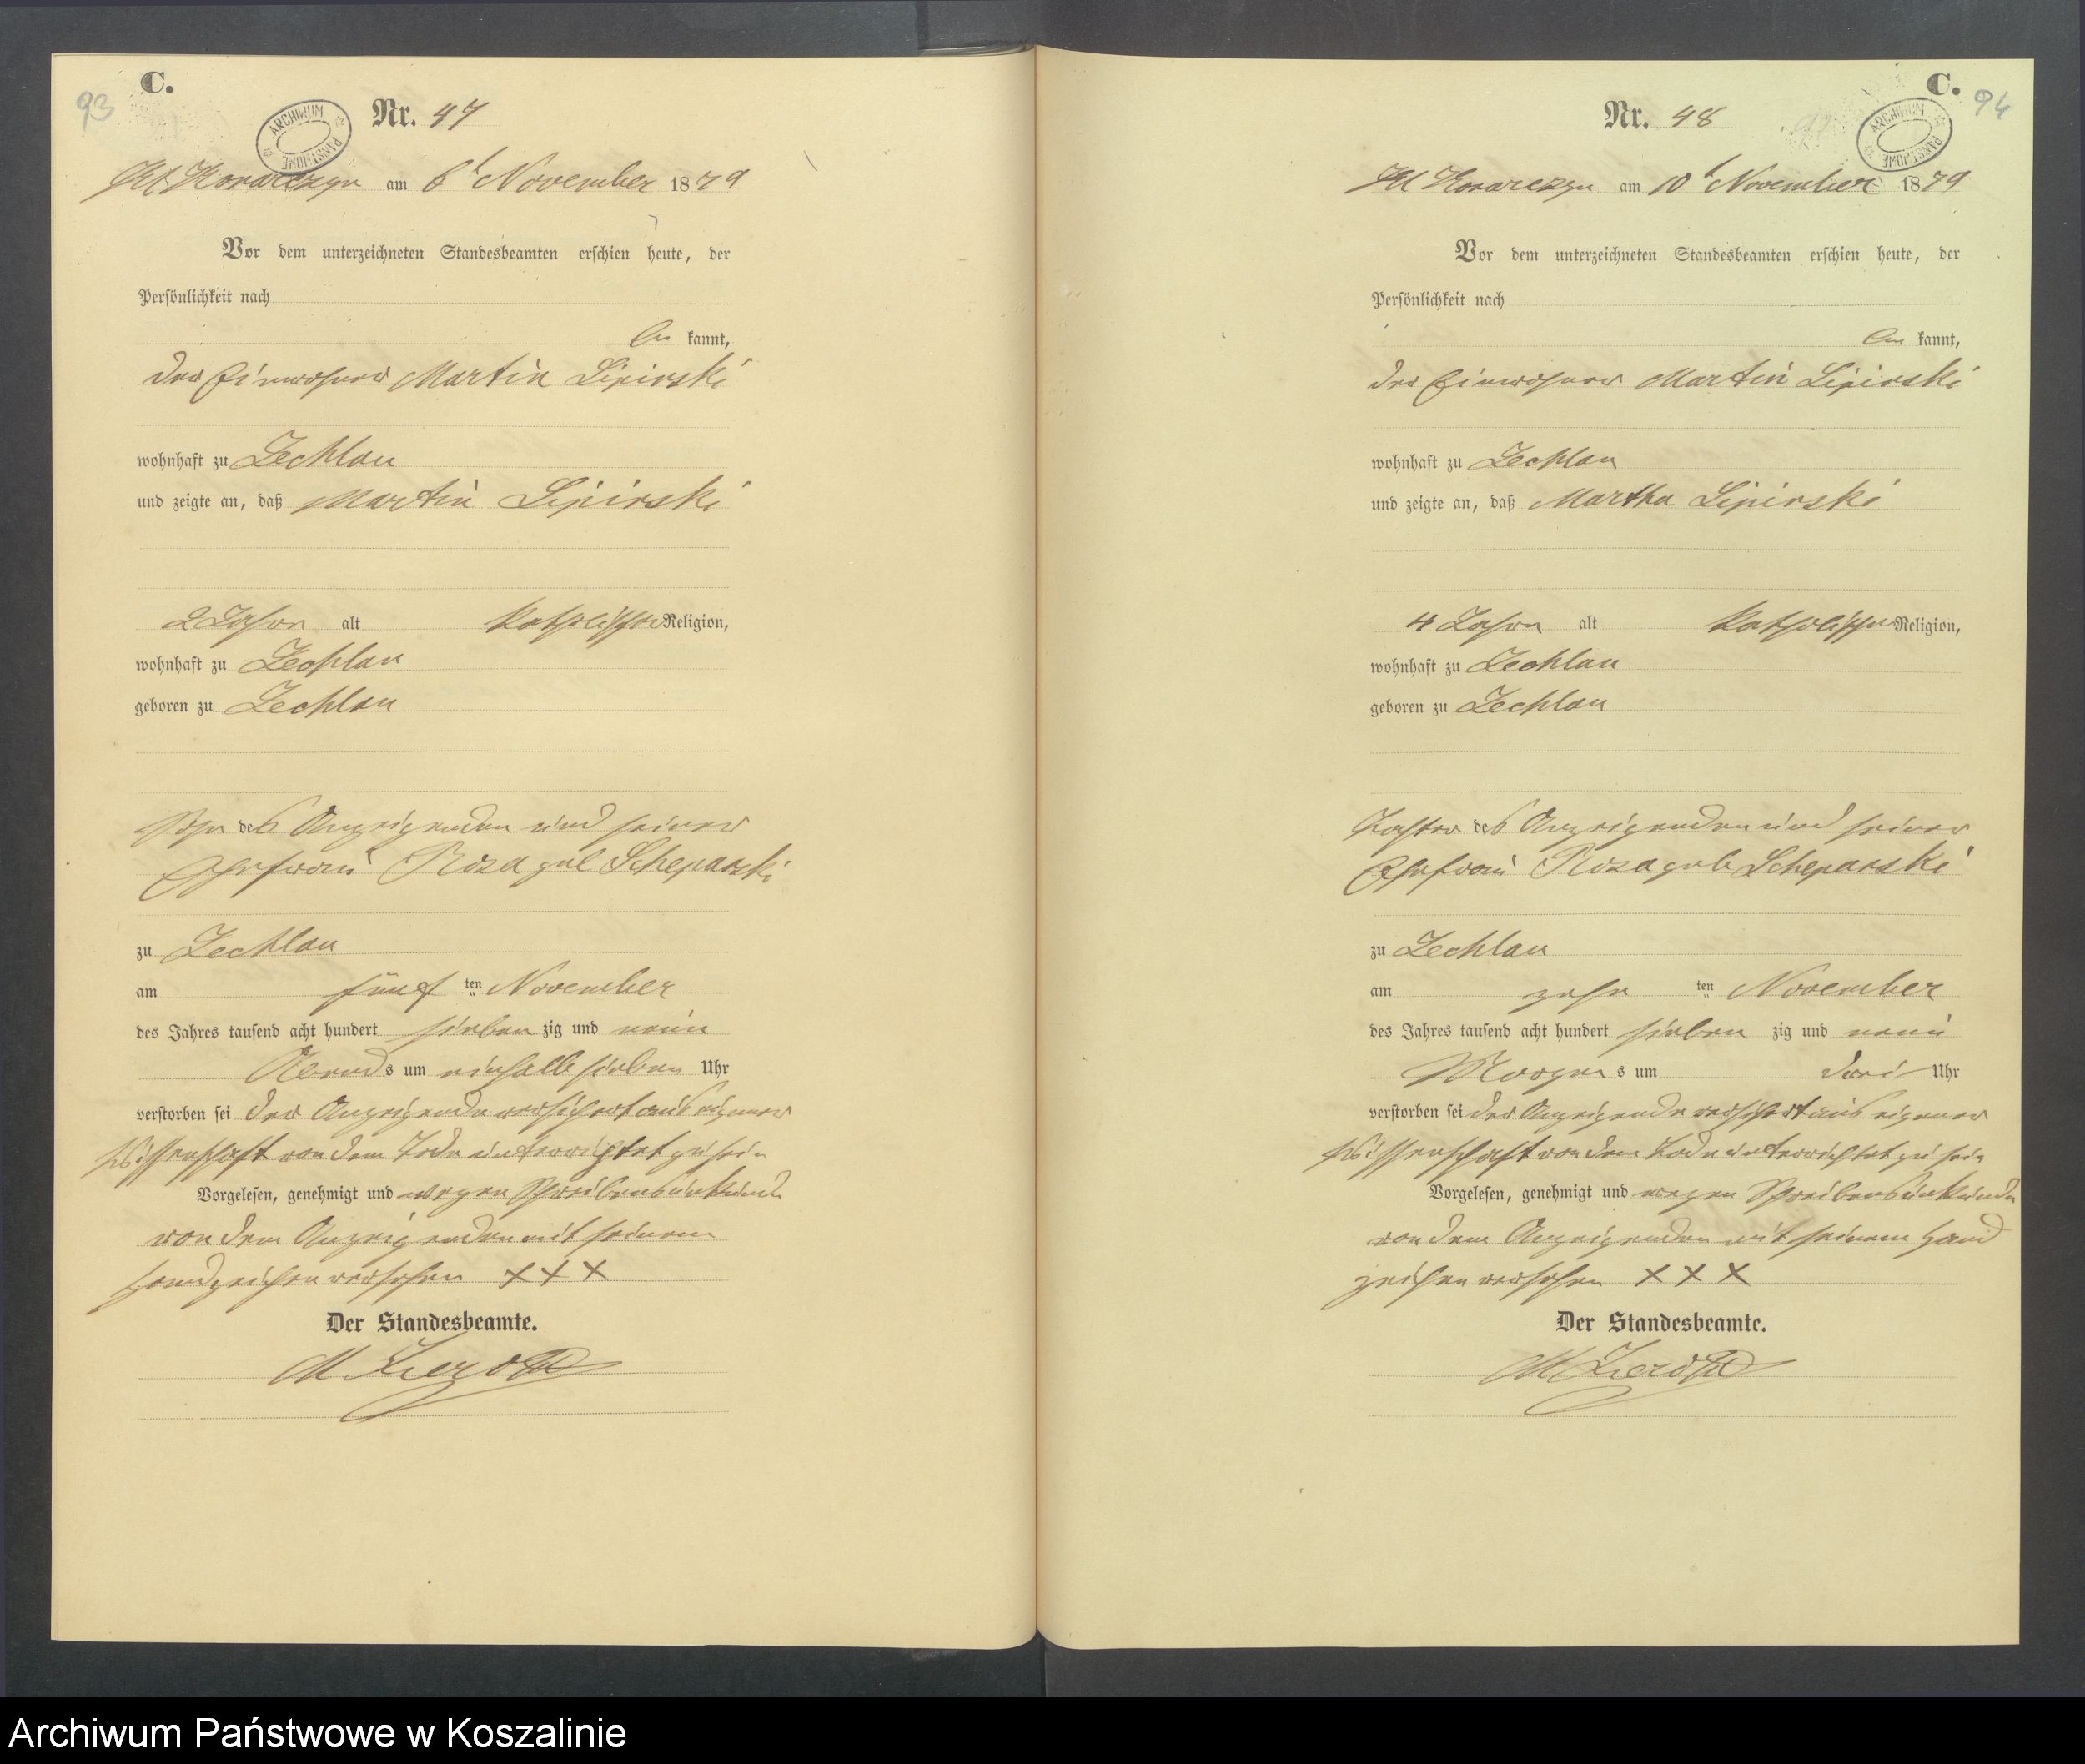 93
C.
ARCHIWUM PAŃSTWOWE
Nr. 47
am 6t November 1879
Vor dem unterzeichneten Standesbeamten erschien heute, der
Persönlichkeit nach
be kannt,
der Einwohner Martin Lipinski
wohnhaft zu Zechlau
und zeigte an, daß Martin Lipinski
2 Jahre alt katholischer Religion,
wohnhaft zu Zechlau
geboren zu Zechlau
Sohn des Anzeigenden und seiner
Ehefrau Rosa geb
zu Zechlau
am fünf ten November
des Jahres tausend acht hundert sieben zig und neun
Abends um einhalb sieben Uhr
verstorben sei der Anzeigende versichert aus eigener
Wissenschaft von dem Tode unterrichtet zu sein
Vorgelesen, genehmigt und wegen Schreibensunkunde
von dem Anzeigenden mit seinem
Handzeichen versehen XXX
Der Standesbeamte.
C.
94
ARCHIWUM PAŃSTWOWE
Nr. 48
am 10t November 1879
Vor dem unterzeichneten Standesbeamten erschien heute, der
Persönlichkeit nach
be kannt,
der Einwohner Martin Lipinski
wohnhaft zu Zechlau
und zeigte an, daß Martha Lipinski
4 Jahre alt katholischer Religion,
wohnhaft zu Zechlau
geboren zu Zechlau
Tochter des Anzeigenden und seiner
Ehefrau Rosa geb
zu Zechlau
am zehn ten November
des Jahres tausend acht hundert sieben zig und neun
Morgens um drei Uhr
verstorben sei der Anzeigende versichert aus eigener
Wissenschaft von dem Tode unterrichtet zu sein
Vorgelesen, genehmigt und wegen Schreibensunkunde
von dem Anzeigenden mit seinem Hand
zeichen versehen XXX
Der Standesbeamte.
Archiwum Państwowe w Koszalinie